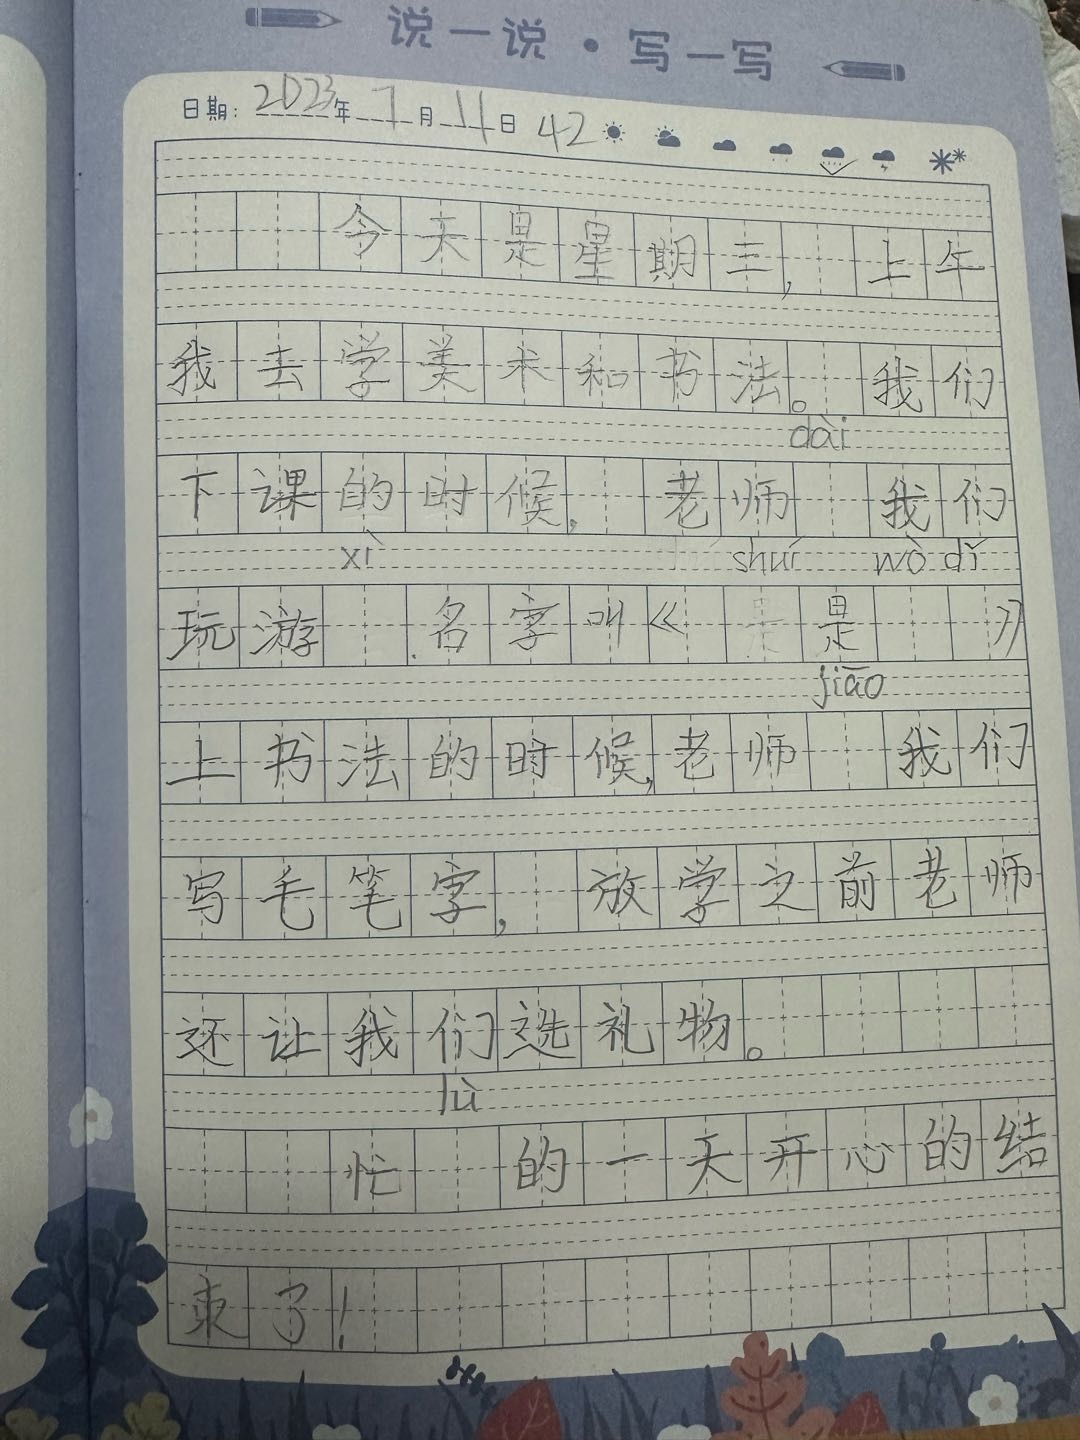 说一说·写一写
日期：2023年7月11日 42
今天是星期三，上午
我去学美术和书法。我们
dài
下课的时候，老师 我们
xì shuí wò dǐ
玩游 名字叫《 是 》
jiāo
上书法的时候，老师 我们
写毛笔字，放学之前老师
还让我们选礼物。
lù
忙 的一天开心的结
束了！